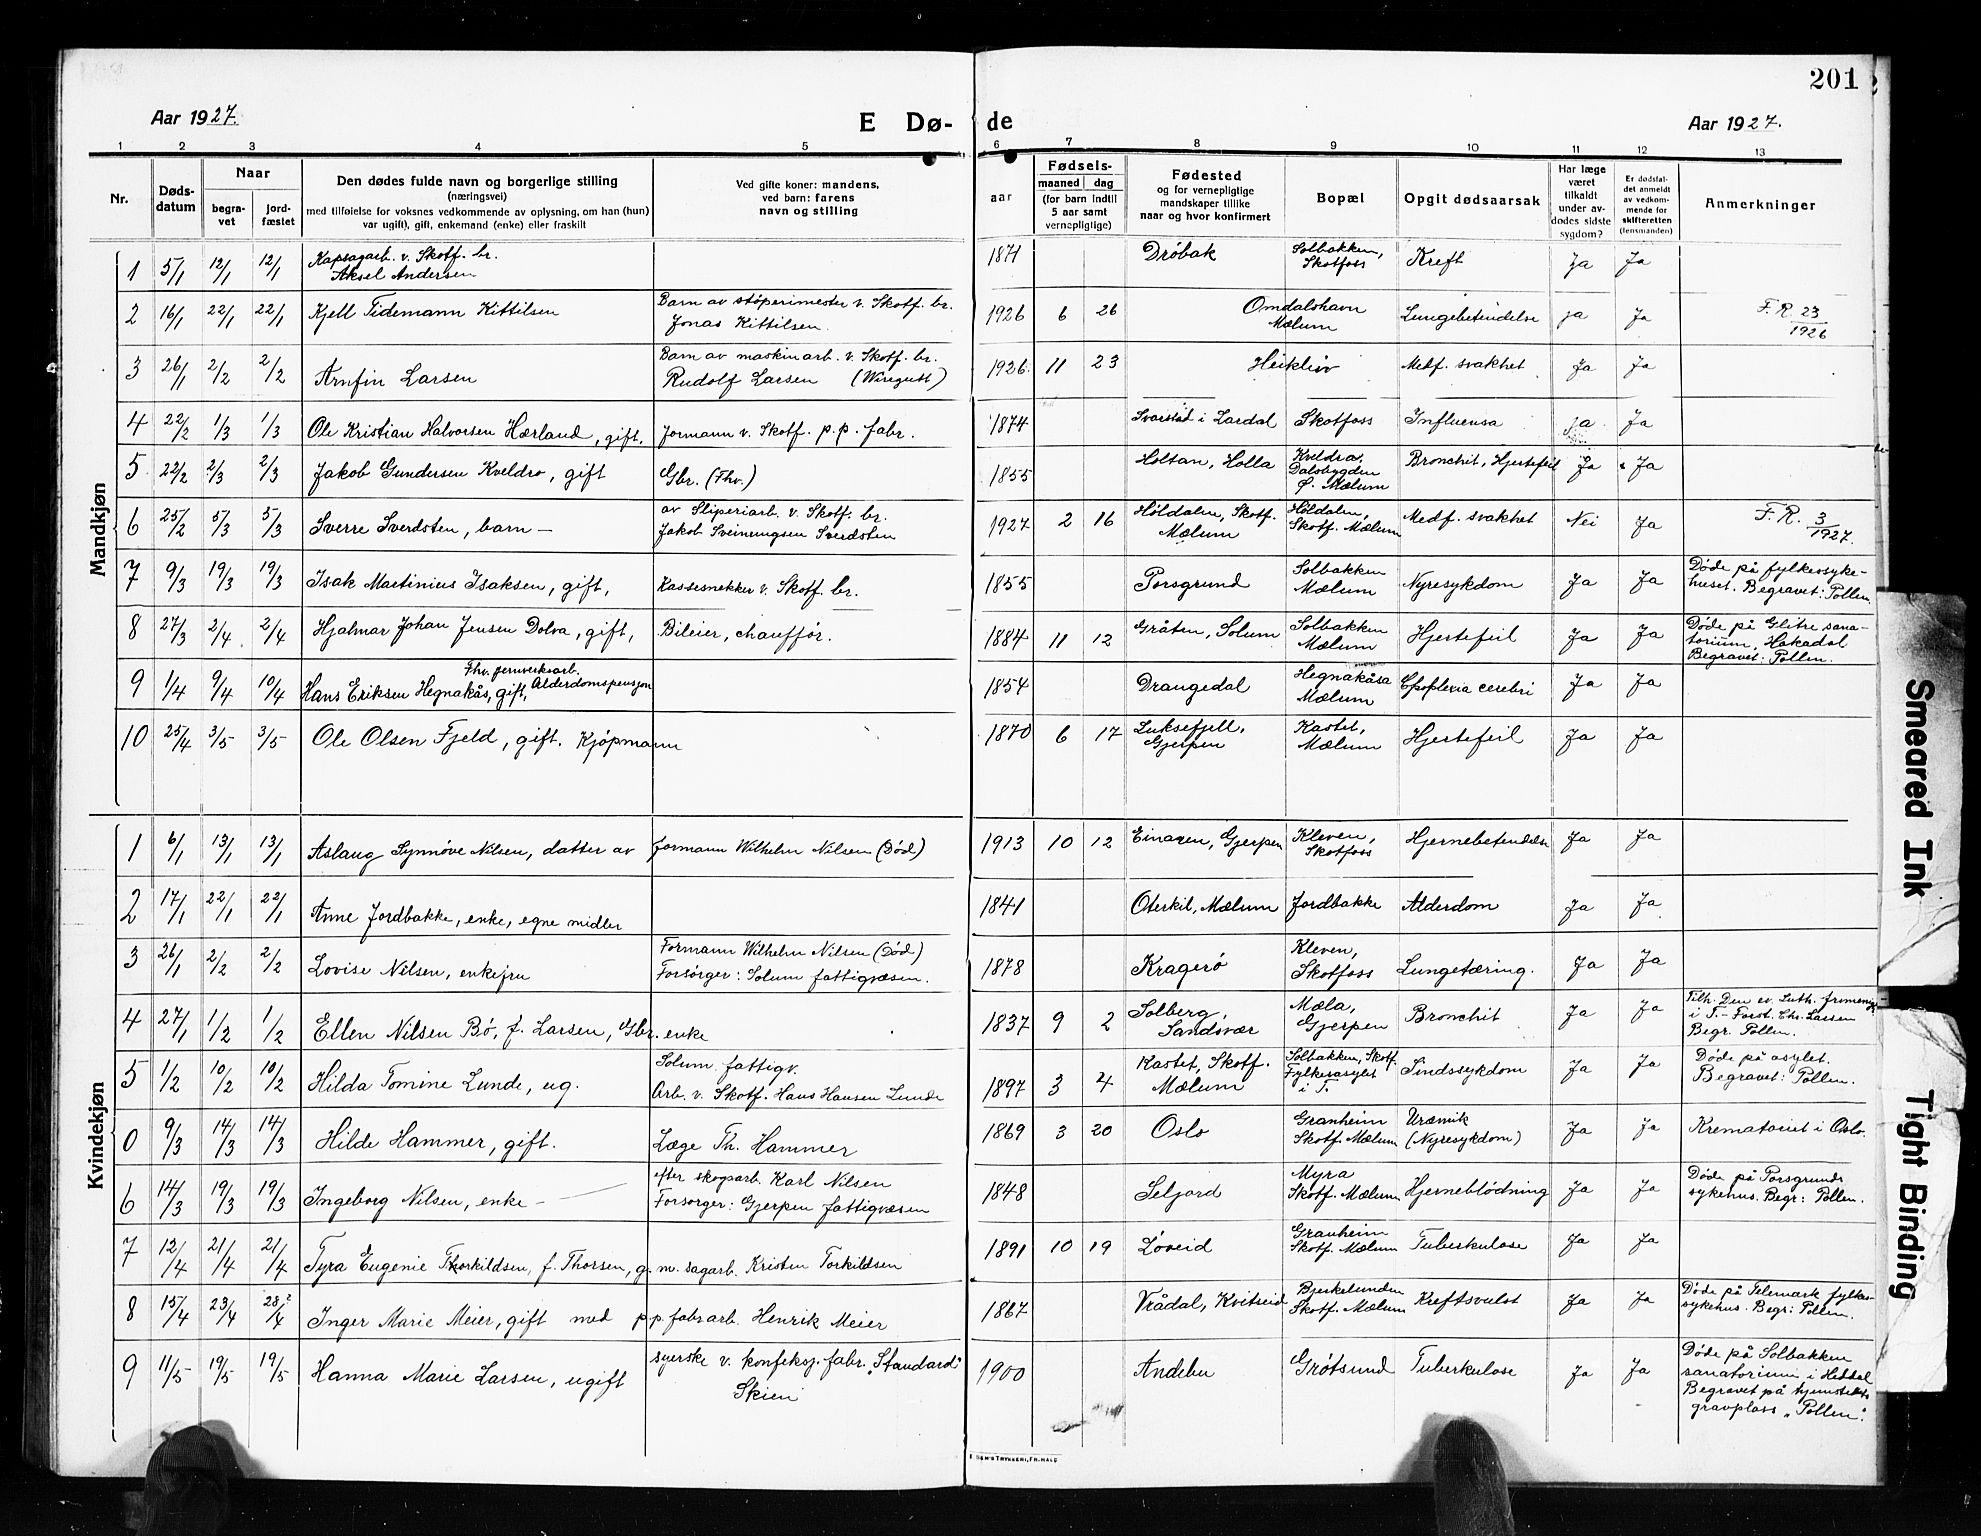 201
Aar 1927.
E Dø-
de
Aar 1927.
1 2 3 4 5 6 7 8 9 10 11 12 13
Nr.
Døds-
datum
Naar
begra-
vet
jord-
fæstet
Den dødes fulde navn og borgerlige stilling
(næringsvei)
med tilføielse for voksnes vedkommende av oplysning, om han (hun)
var ugift), gift, enkemand (enke) eller fraskilt
Ved gifte koner: mandens,
ved barn: farens
navn og stilling
aar
Fødsels-
maaned dag
(for barn indtil
5 aar samt
vernepligtige)
Fødested
og for vernepligtige
mandskaper tillike
naar og hvor konfirmert
Bopæl
Opgit dødsaarsak
Har læge
været
tilkaldt
under av-
dødes sidste
sygdom?
Er dødsfal-
det anmeldt
av vedkom-
mende for
skifteretten
(lensmanden)
Anmerkninger
Mandkjøn
1 5/1 12/1 12/1 Kapsagarb. v. Skotf. br. Aksel Andersen 1871 Drøbak Solbakken, Skotfoss Kreft Ja Ja
2 16/1 22/1 22/1 Kjell Tidemann Kittilsen Barn av støperimester v. Skotf. br. Jonas Kittilsen. 1926 6 26 Omdalshavn Mælum Lungebetendelse ja Ja F. R. 23/1926
3 26/1 2/2 2/2 Arnfin Larsen Barn av maskinarb. v. Skotf. br. Rudolf Larsen (Wiregutt) 1926. 11 23 Heikliøv Medf. svakhet Ja Ja
4 22/2 1/3 1/3 Ole Kristian Halvorsen Hærland, gift. Formann v. Skotf. p.p. fabr. 1874 Svarstad i Lardal Skotfoss Influensa ja Ja
5 22/2 2/3 2/3 Jakob Gundersen Kveldro, gift Gbr. (Fhv.) 1855 Holtan, Holla Kveldra, Dalsbygden Ø. Mælum Bronchit, Hjertefeil Ja Ja
6 25/2 5/3 5/3 Sverre Sverdsten, barn — av Sliperiarb. v. Skotf. br. Jakob Sveinungsen Sverdsten 1927 2 16 Høldalen, Skotf. Mælum Høldalen, Skotf. Mælum Medf. svakhet Nei Ja F. R. 3/1927.
7 9/3 19/3 19/3 Isak Martinius Isaksen, gift, Kassesnekker v. Skotf. br. 1855 Porsgrund Solbakken Mælum Nyresykdom Ja Ja Døde på fylkessyke- huset. Begravet: Pollen.
8 27/3 2/4 2/4 Hjalmar Johan Jensen Dolva, gift, Bileier, chauffør. 1884 11 12 Gråten, Solum Solbakken Mælum Hjertefeil Ja Ja Døde på Glitre sana- torium, Hakadal Begravet: Pollen.
9 1/4 9/4 10/4 Fhv. jernverksarb. Hans Eriksen Hegnakås, gift, Alderdomspensjon 1854 Drangedal Hegnakåsa Mælum Apoplexia cerebri Ja Ja
10 25/4 3/5 3/5 Ole Olsen Fjeld, gift. Kjøpmann 1870 6 17 Luksefjell, Gjerpen Kastet, Mælum Hjertefeil Ja Ja
Kvindekjøn
1 6/1 13/1 13/1 Aslaug Synnøve Nilsen, datter av formann Wilhelm Nilsen (Død) 1913 10 12 Einaren, Gjerpen Kleven, Skotfoss Hjernebetendelse Ja Ja
2 17/1 22/1 22/1 Anne Jordbakke, enke, egne midler 1841 Oterkil, Mælum Jordbakke Alderdom Ja Ja
3 26/1 2/2 2/2 Lovise Nilsen, enkefru Formann Wilhelm Nilsen (Død) Forsørger: Solum fattigvæsen. 1878 Kragerø Kleven, Skotfoss Lungetæring. Ja Ja
4 27/1 1/2 1/2 Ellen Nilsen Bø, f. Larsen, Gbr. enke 1837 9 2 Solberg, Sandsvær Mæla, Gjerpen Bronchit Ja Ja Tilh. Den ev. Luth. frimenigh. i S. - Forst. Chr. Larsen Begr. Pollen.
5 1/2 10/2 10/2 Hilda Tomine Lunde, ug. Solum fattigv. Arb. v. Skotf. Hans Hansen Lunde 1897 3 4 Kastet, Skotf. Mælum Solbakken, Skotf. Fylkesasylet i S. Sindssykdom Ja Ja Døde på asylet. Begravet: Pollen.
0 9/3 14/3 14/3 Hilde Hammer, gift. Læge Th. Hammer 1869 3 20 Oslo Granheim Skotf. Mælum Uræmik (Nyresykdom) Ja Ja Krematoriet i Oslo.
6 14/3 19/3 19/3 Ingeborg Nilsen, enke — efter skogsarb. Karl Nilsen Forsørger: Gjerpen fattigvæsen 1848 Seljord Myra Skotf. Mælum Hjerneblødning Ja Ja Døde på Porsgrunds sykehus. Begr: Pollen.
7 12/4 21/4 21/4 Tyra Eugenie Thorkildsen, f. Thorsen, g. m. sagarb. Kristen Torkildsen 1891 10 19 Løveid Granheim Skotf. Mælum Tuberkulose Ja Ja
8 15/4 23/4 28?/4 Inger Marie Meier, gift med p.p. fabr.arb. Henrik Meier 1867 Vrådal, Kviteseid Bjerkelunden Skotf. Mælum Kreftsvulst Ja Ja Døde på Telemark fylkes- sykehus. Begr: Pollen.
9 11/5 19/5 19/5 Hanna Marie Larsen, ugift syerske v. konfeksj. fabr. "Standard" Skien 1900 Andebu Grøtsund Tuberkulose Ja Ja Døde på Solbakken sanatorium i Heddal Begravet på hjemstedets gravplass "Pollen".
Smeared Ink
Tight Binding